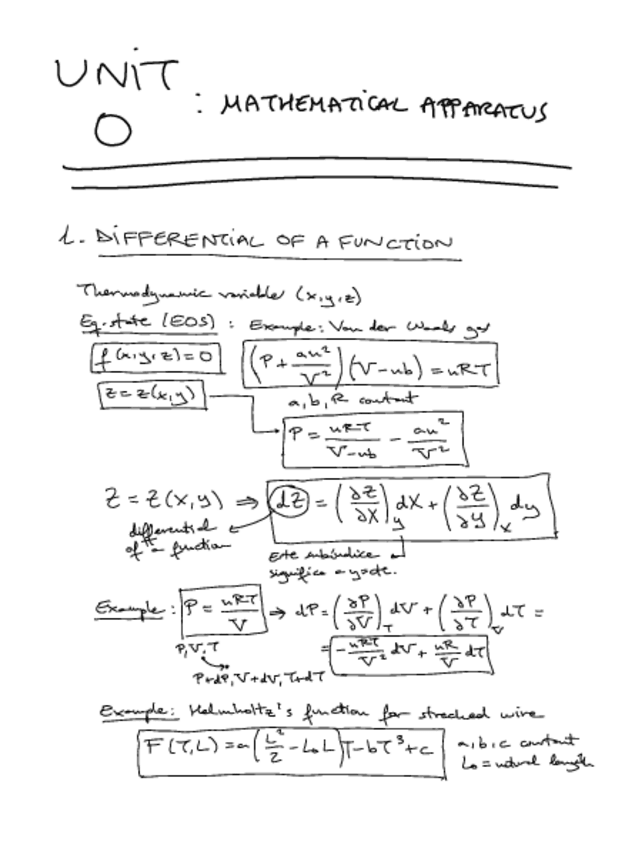 UNIT
0 : MATHEMATICAL APPARATUS
1. DIFFERENTIAL OF A FUNCTION
Thermodynamic variable (x,y,z)
Eq. state (EOS) : Example: Van der Waals gas
f(x,y,z)=0 (P+an²/V²)(V-nb)=nRT
z=z(x,y) a, b, R constant
P=nRT/(V-nb) - an²/V²
Z=Z(x,y) ⇒ dZ=(∂Z/∂X)_y dX+(∂Z/∂y)_x dy
differential
of a function
Este subíndice
significa → y=cte.
Example: P=nRT/V ⇒ dP=(∂P/∂V)_T dV+(∂P/∂T)_V dT=
P,V,T =-nRT/V² dV+nR/V dT
P+dP, V+dV, T+dT
Example: Helmholtz's function for streched wire
F(T,L)=a(L²/2-L₀L)T-bT³+c a,b,c constant
L₀=natural length